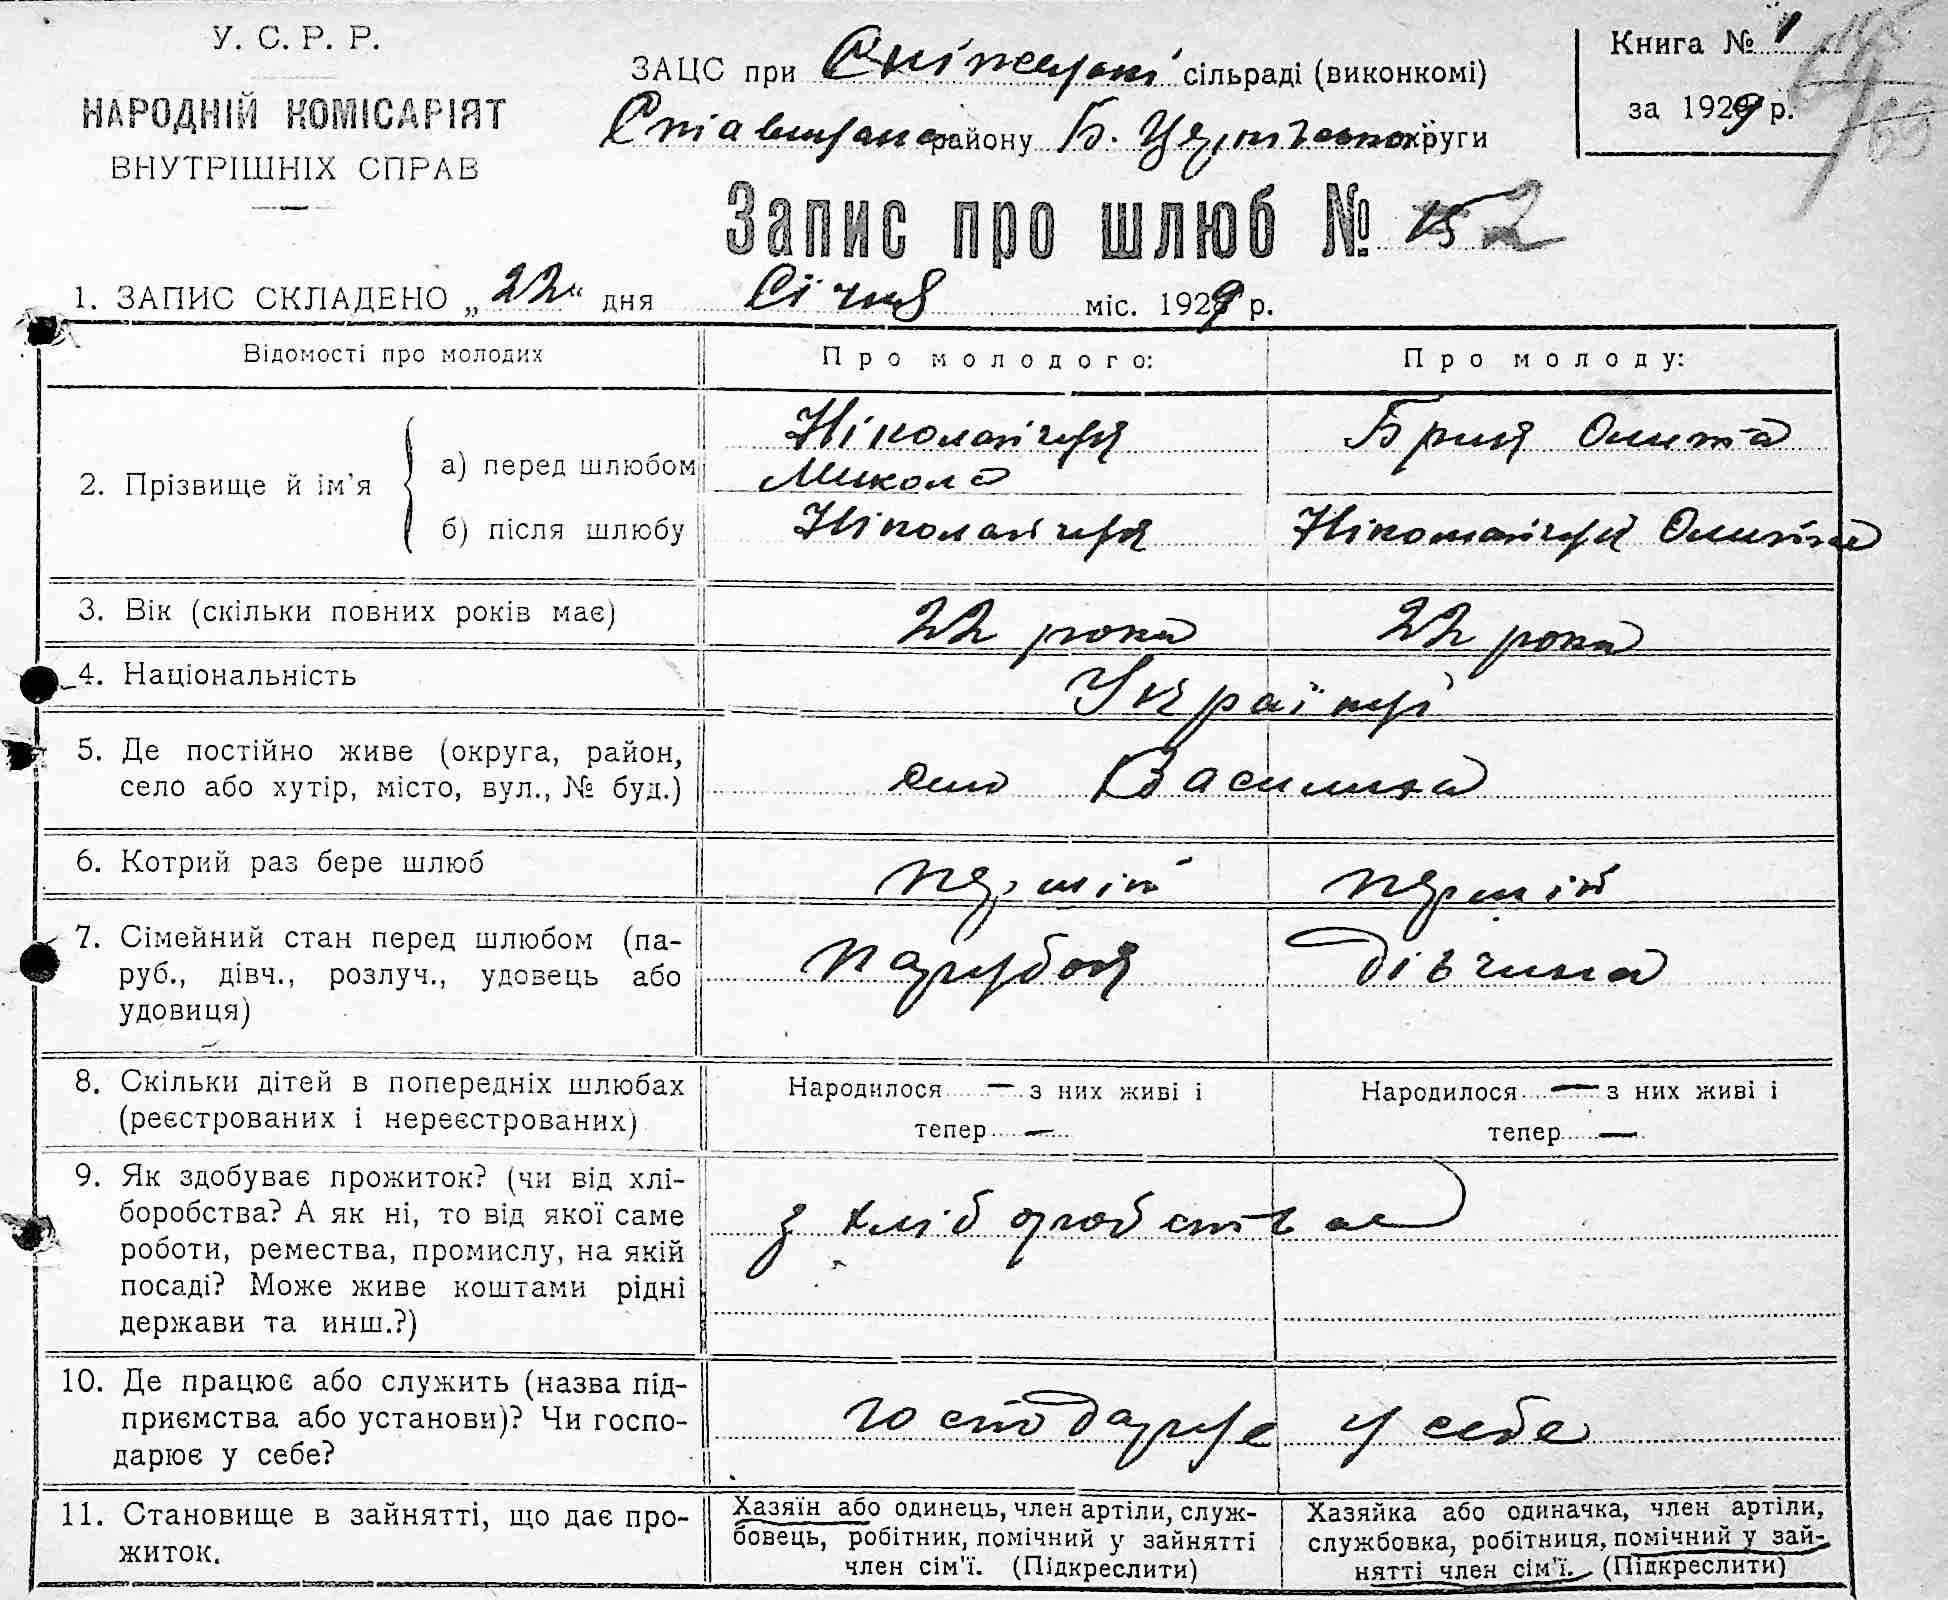 У. С. Р. Р.
НАРОДНІЙ КОМІСАРІЯТ
ВНУТРІШНІХ СПРАВ
ЗАЦС при сільраді (виконкомі)
району Б. Церківської округи
Книга № 1
за 1929 р.
Запис про шлюб № 2
1. ЗАПИС СКЛАДЕНО „22“ дня Січня міс. 1929 р.
Відомості про молодих
Про молодого:
Про молоду:
2. Прізвище й ім'я
а) перед шлюбом
Микола
б) після шлюбу
3. Вік (скільки повних років має)
22 роки
22 роки
4. Національність
Українці
5. Де постійно живе (округа, район,
село або хутір, місто, вул., № буд.)
село Василиха
6. Котрий раз бере шлюб
перший
перший
7. Сімейний стан перед шлюбом (па-
руб., дівч., розлуч., удовець або
удовиця)
дівчина
8. Скільки дітей в попередніх шлюбах
(реєстрованих і нереєстрованих)
Народилося — з них живі і
тепер —
Народилося — з них живі і
тепер —
9. Як здобуває прожиток? (чи від хлі-
боробства? А як ні, то від якої саме
роботи, ремества, промислу, на якій
посаді? Може живе коштами рідні
держави та инш.?)
з хліборобства
10. Де працює або служить (назва під-
приємства або установи)? Чи госпо-
дарює у себе?
господарує у себе
11. Становище в зайнятті, що дає про-
житок.
Хазяїн або одинець, член артіли, служ-
бовець, робітник, помічний у зайнятті
член сім'ї. (Підкреслити)
Хазяйка або одиначка, член артіли,
службовка, робітниця, помічний у зай-
нятті член сім'ї. (Підкреслити)